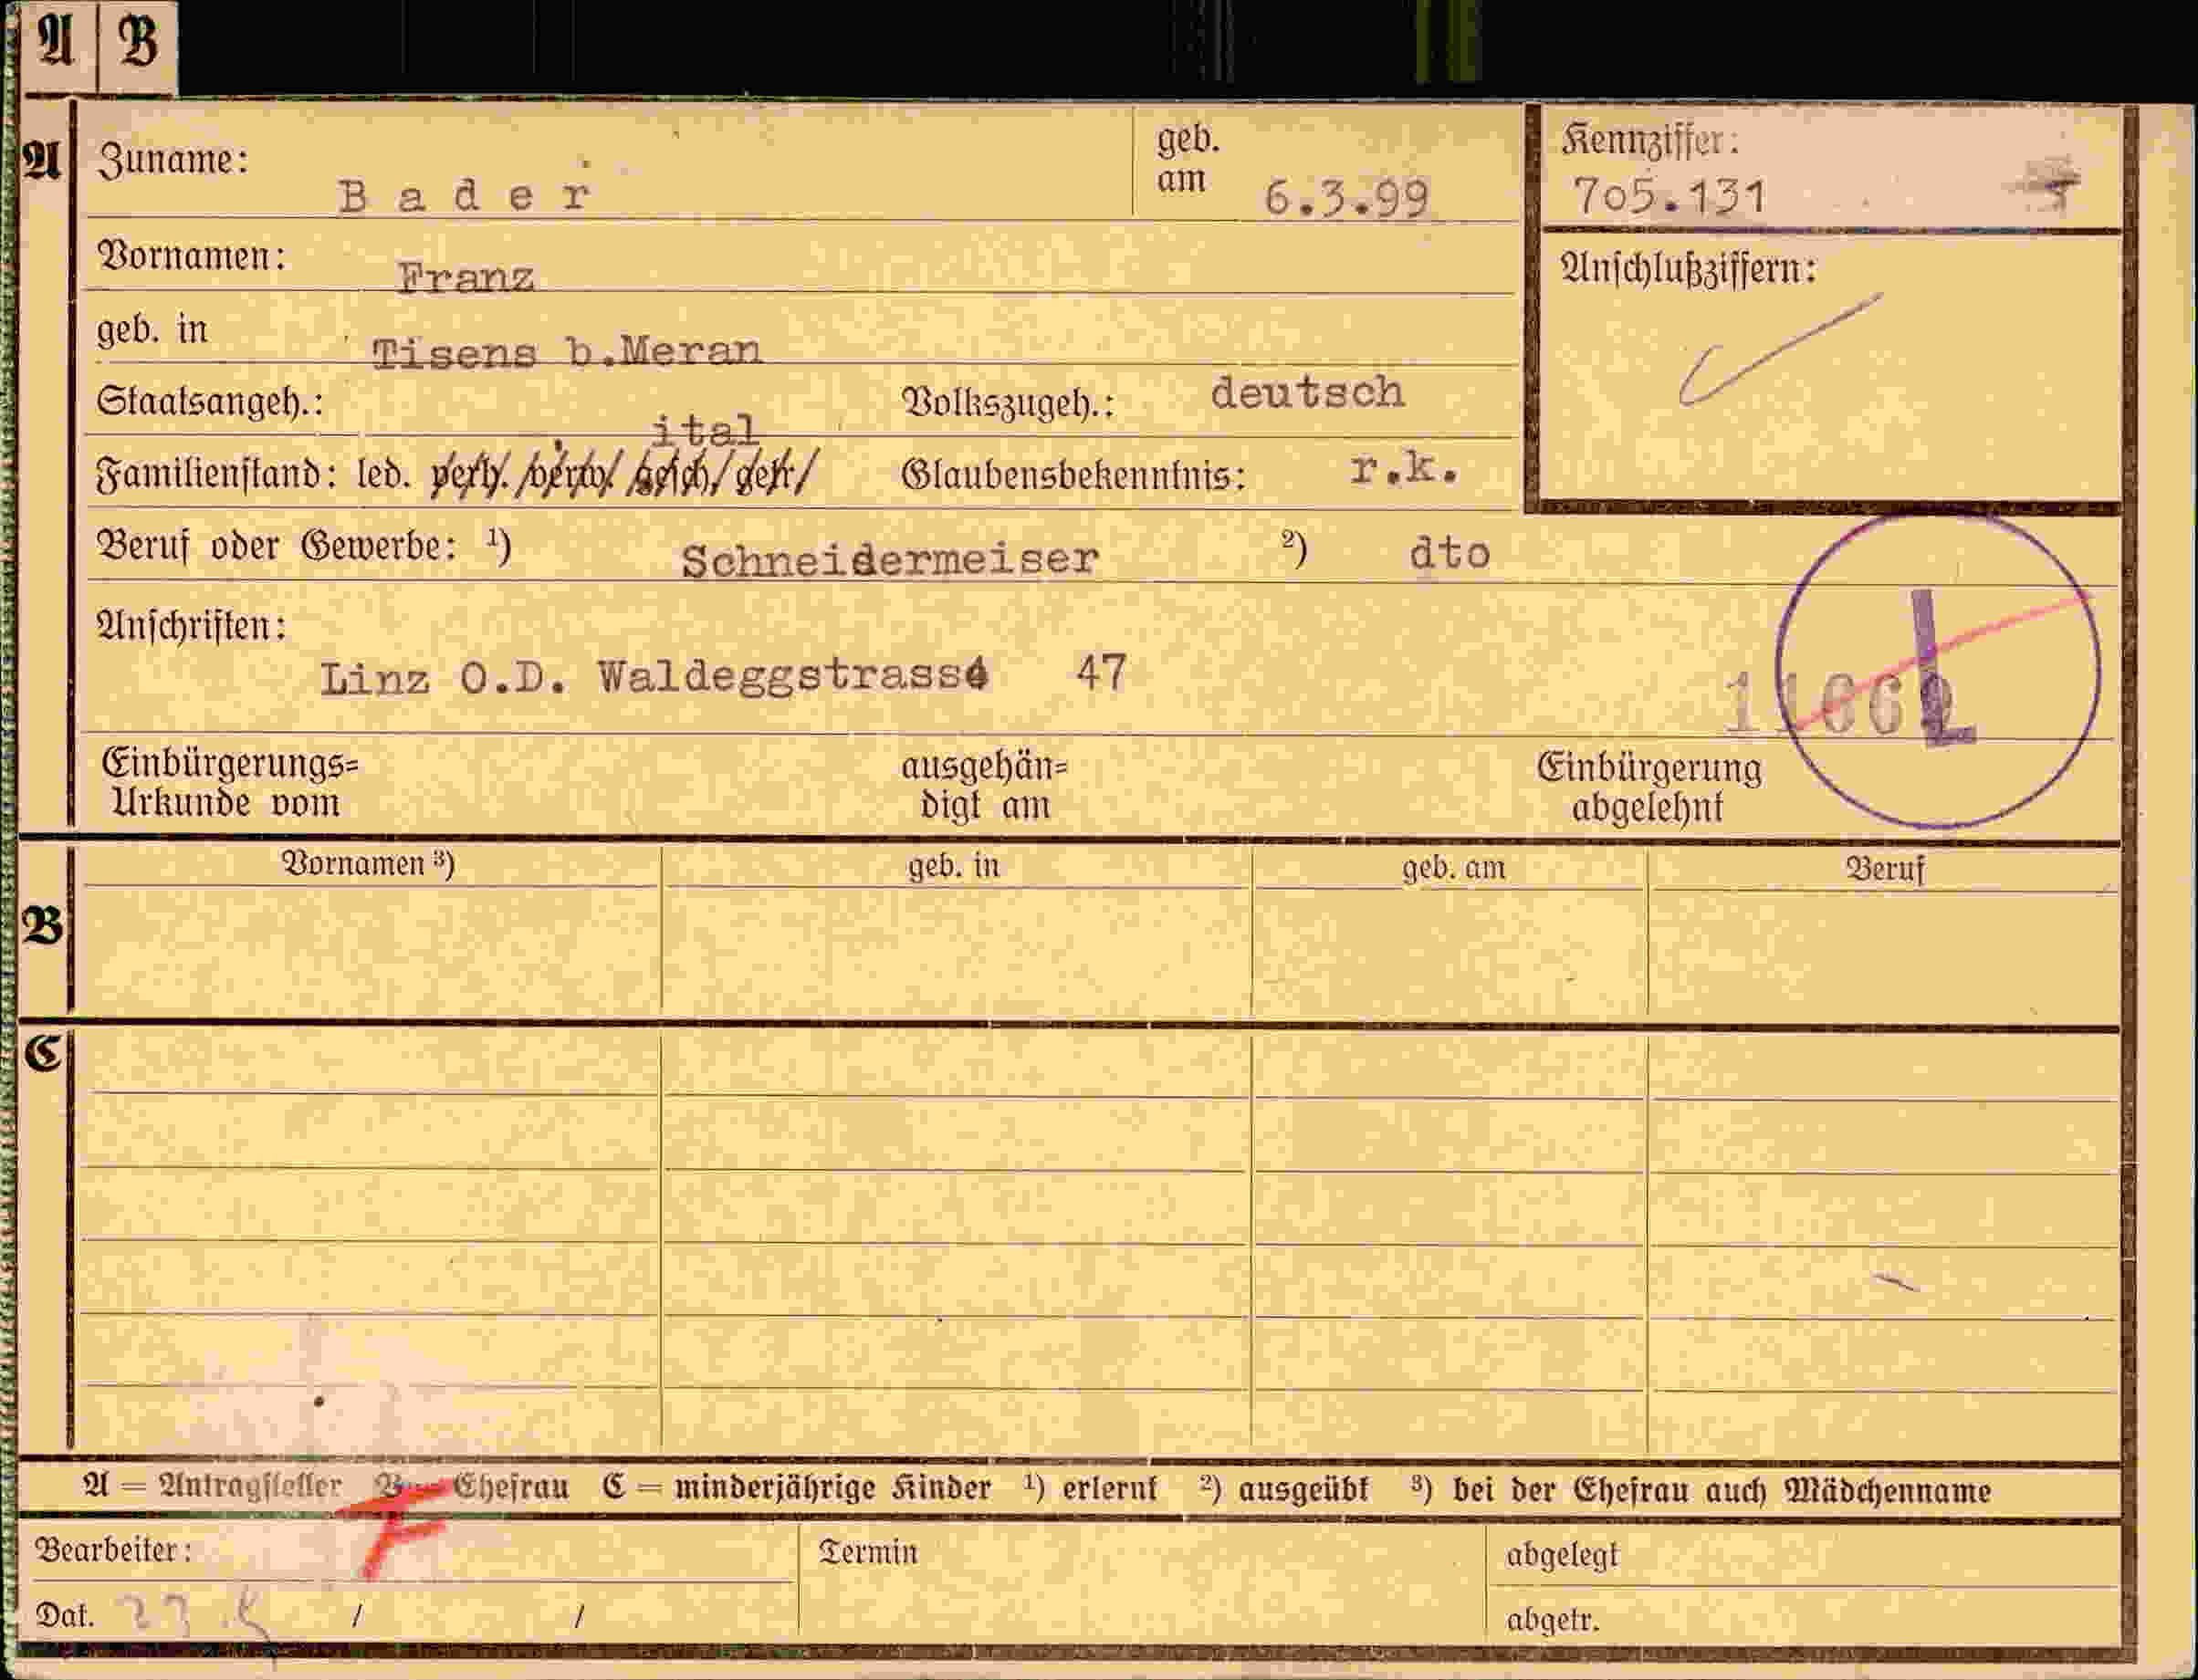 A B
A Zuname: Bader geb. am 6.3.99
Kennziffer: 705.131
Vornamen: Franz
Anschlußziffern:
geb. in Tisens b.Meran
Staatsangeh.: ital Volkszugeh.: deutsch
Familienstand: led. verh. verw. gesch. getr. Glaubensbekenntnis: r.k.
Beruf oder Gewerbe: ¹) Schneidermeiser ²) dto
Anschriften:
Linz O.D. Waldeggstrasse 47
L
Einbürgerungs=
Urkunde vom
ausgehän=
digt am
Einbürgerung
abgelehnt
B Vornamen ³) geb. in geb. am Beruf
C
A = Antragsteller B = Ehefrau C = minderjährige Kinder ¹) erlernt ²) ausgeübt ³) bei der Ehefrau auch Mädchenname
F
Bearbeiter: Termin abgelegt
Dat. / / abgetr.